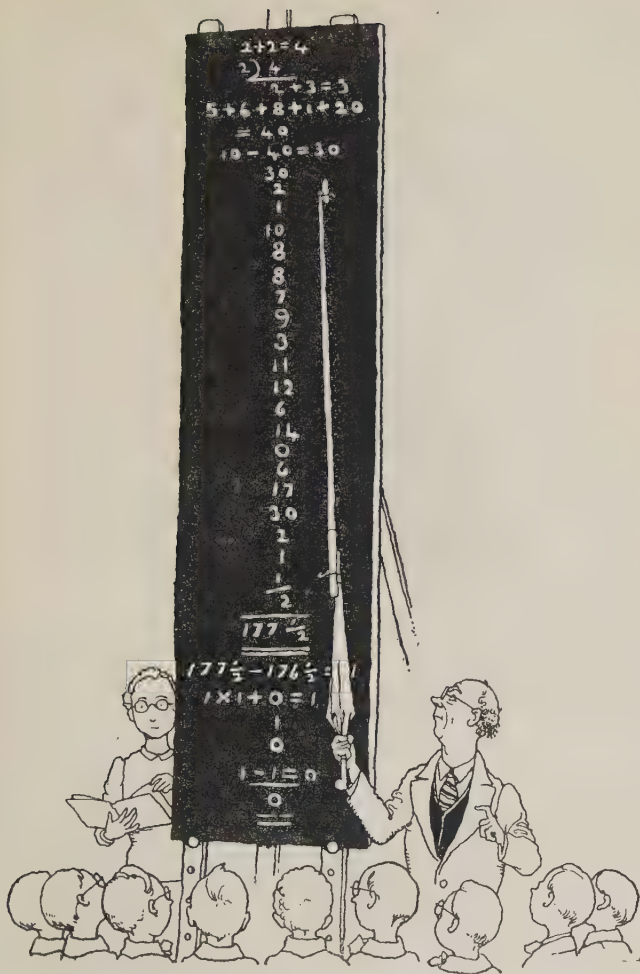 2+2=4
2)4
2+3=5
5+6+8+1+20
=40
10-40=30
30
2
1
10
8
8
7
9
3
11
12
6
14
0
6
17
30
2
1
1/2
177 1/2
177 1/2 - 176 1/2 = 1
1×1+0=1
1
0
1-1=0
0